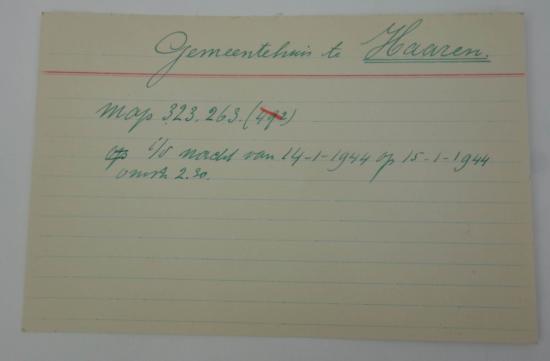 Gemeentehuis te Haaren.
map 323.263. (492)
op i/d nacht van 14-1-1944 op 15-1-1944
omstr. 2.30.